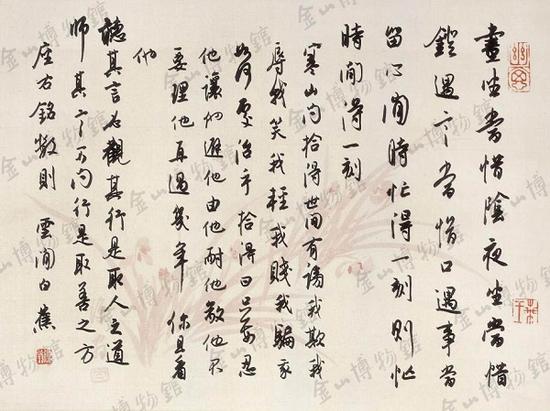 晝坐當惜陰夜坐當惜
鐙遇言當惜口遇事當
留心閒時忙得一刻則忙
時閒得一刻
寒山問拾得世間有謗我欺我
辱我笑我輕我賤我騙我
如何處治乎拾得曰只要忍
他讓他避他由他耐他敬他不
要理他再過幾年你且看
他
聽其言必觀其行是取人之道
師其言不問行是取善之方
座右銘數則 雲間白蕉
金山博物館